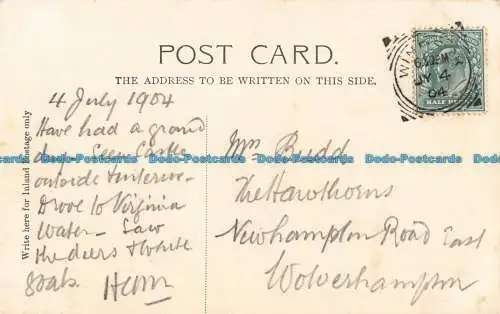 POST CARD.
THE ADDRESS TO BE WRITTEN ON THIS SIDE.
Write here for Inland Postage only
4 July 1904
Have had a grand
day. Seen Castle
outside & interior -
Drove to Virginia
Water - Saw
the deers & white
goats.
Mrs Budd
The Hawthorns
Newhampton Road East
Wolverhampton
WIN
JY 4
04
HALF PE
Dodo-Postcards Dodo-Postcards Dodo-Postcards Dodo-Postcards Dodo-Postcards